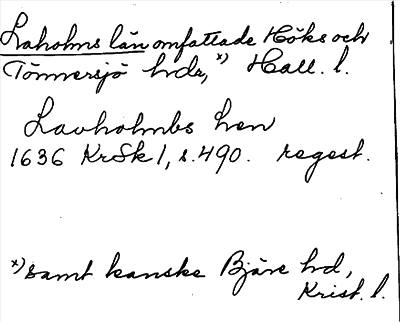 Laholms län omfattade Höks och
Tönnersjö hdr, x) Hall. l.
Lavholmbs hen
1636 KrSk 1, s. 490. regest.
x) samt kanske Bjäre hd,
Krist. l.